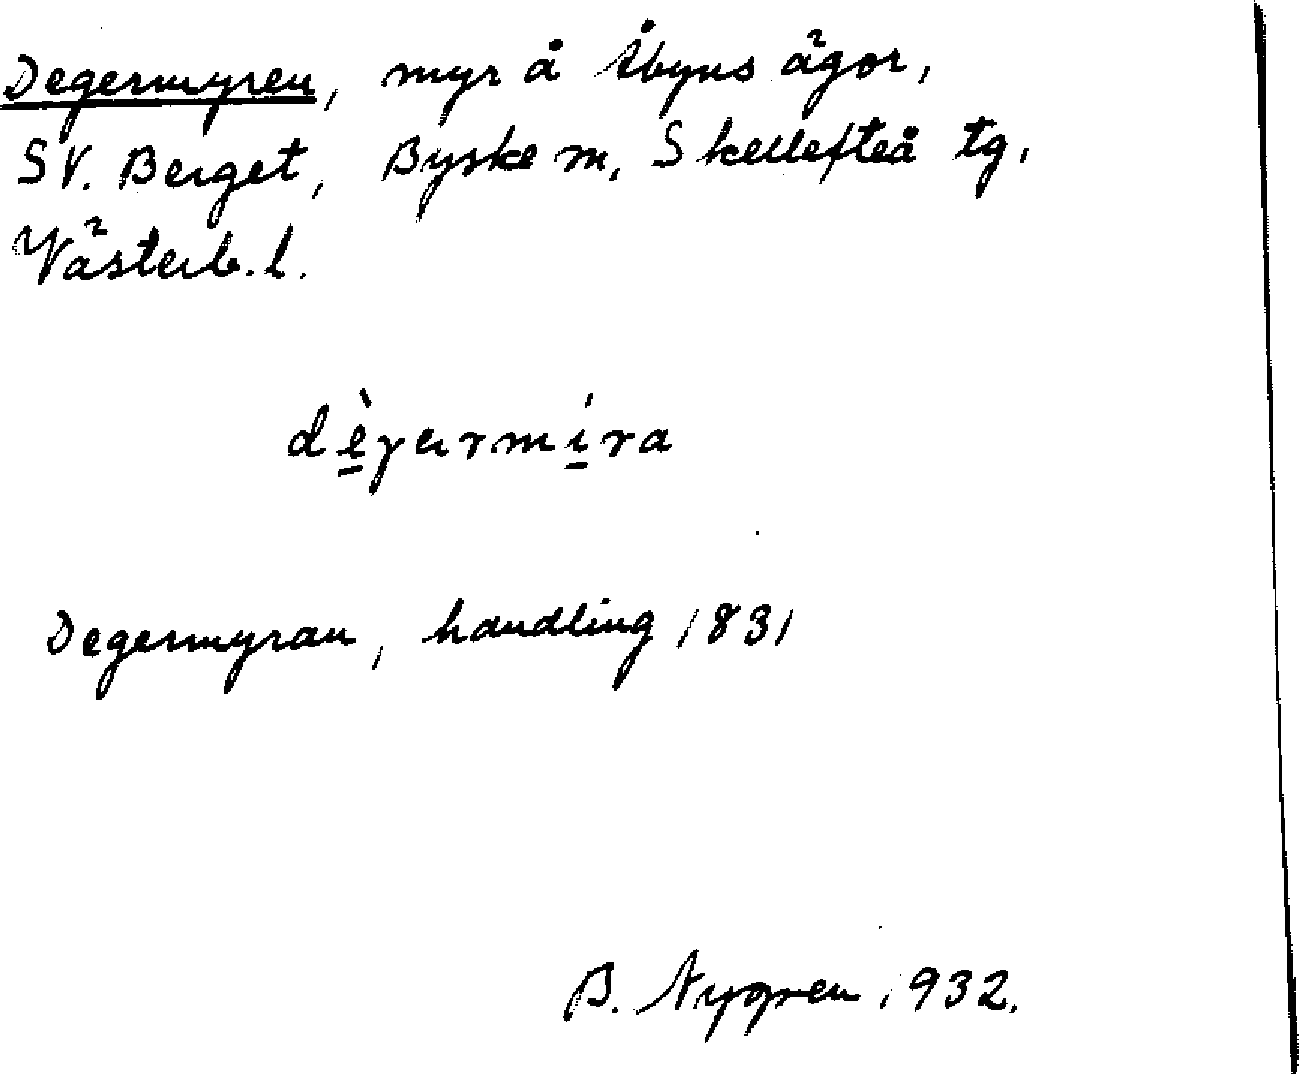 Degermyren, myr å Åbyns ägor,
SV. Berget, Byske sn, Skellefteå tg,
Västerb. l.
dèɣarmíra
Degermyran, handling 1831
B. Nygren 1932.